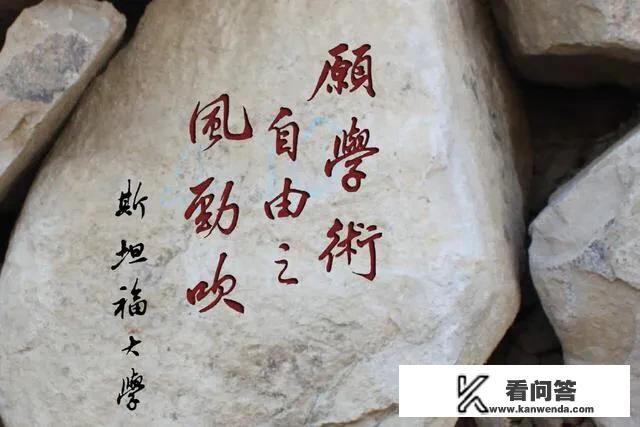 願學術
自由之
風勁吹
斯坦福大學
看问答
www.kanwenda.com